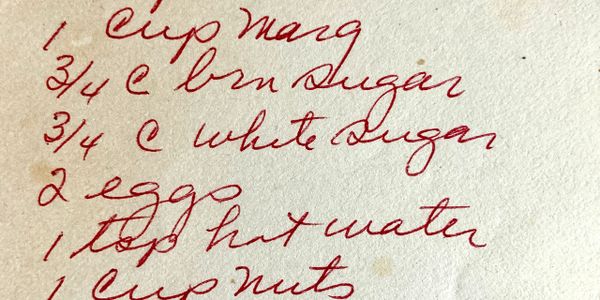 1 cup marg
3/4 c brn sugar
3/4 c white sugar
2 eggs
1 tsp hot water
1 cup nuts